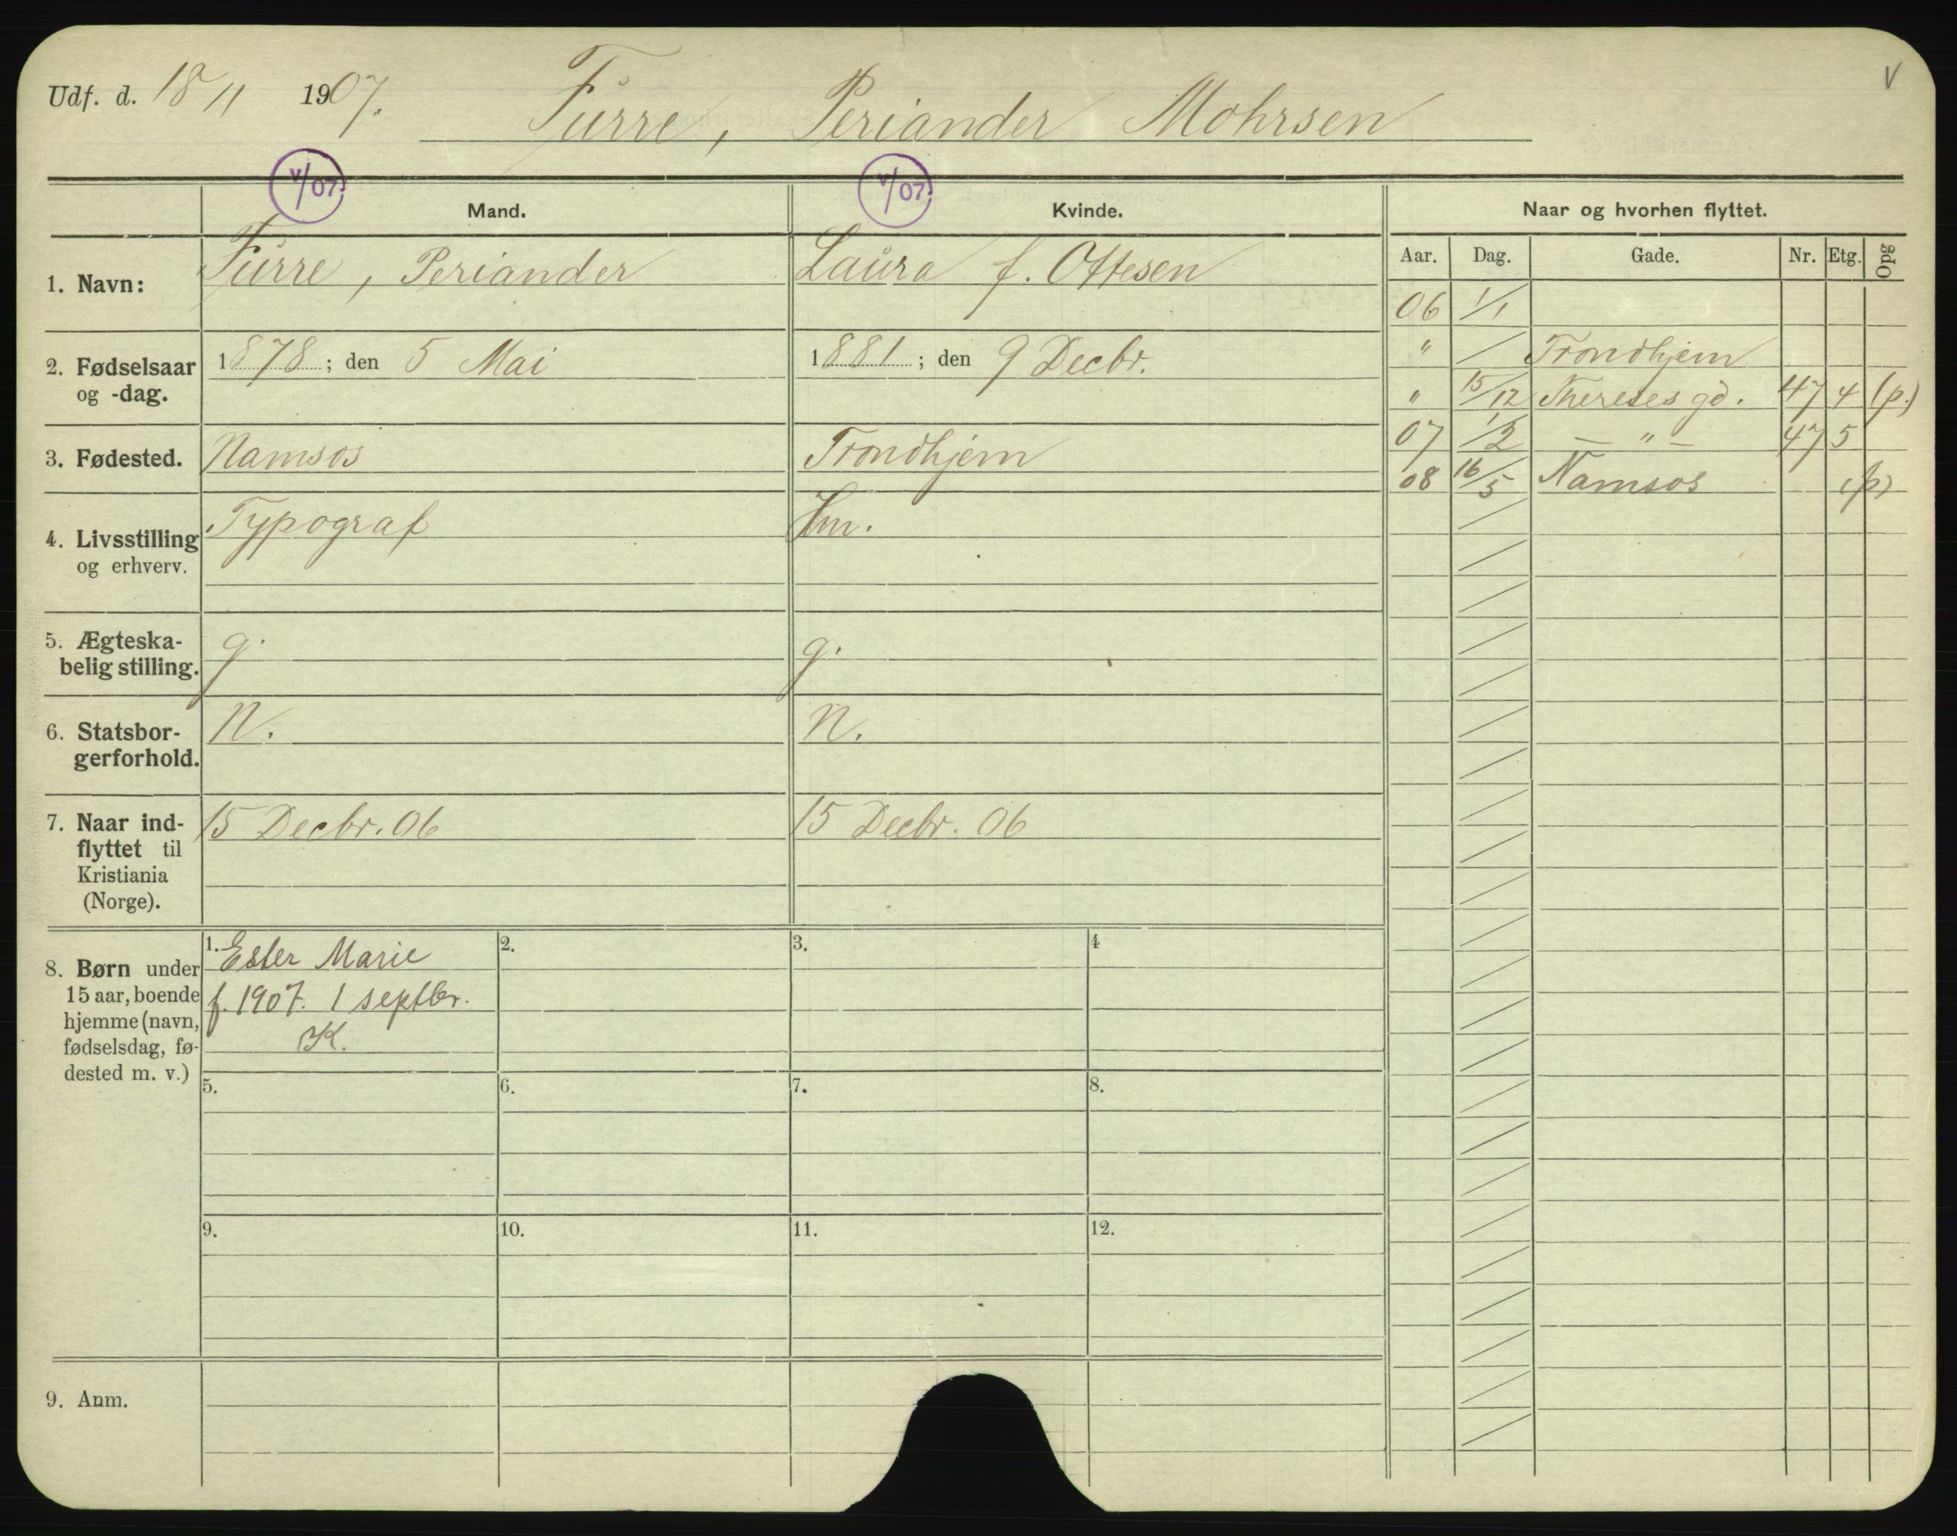 Udf. d. 18/11 1907. Furre, Periander Mohrsen
V
V/07. V/07.
Mand. Kvinde. Naar og hvorhen flyttet.
Aar. Dag. Gade. Nr. Etg. Opg
1. Navn: Furre, Periander Laura f. Ottesen
06 1/1
2. Fødselsaar og -dag. 1878; den 5 Mai 1881; den 9 Decbr.
" / Trondhjem
" 15/12 Thereses gd. 47 4 (p.)
07 1/2 — " — 47 5
3. Fødested. Namsos Trondhjem
08 16/5 Namsos (p)
4. Livsstilling og erhverv. Typograf Hm.
5. Ægteska-
belig stilling. g. g.
6. Statsbor-
gerforhold. N. N.
7. Naar ind-
flyttet til
Kristiania
(Norge). 15 Decbr. 06 15 Decbr. 06
8. Børn under
15 aar, boende
hjemme (navn,
fødselsdag, fø-
dested m. v.)
1. Ester Marie
f. 1907. 1 septbr.
K.
2. 3. 4
5. 6. 7. 8.
9. 10. 11. 12.
9. Anm.